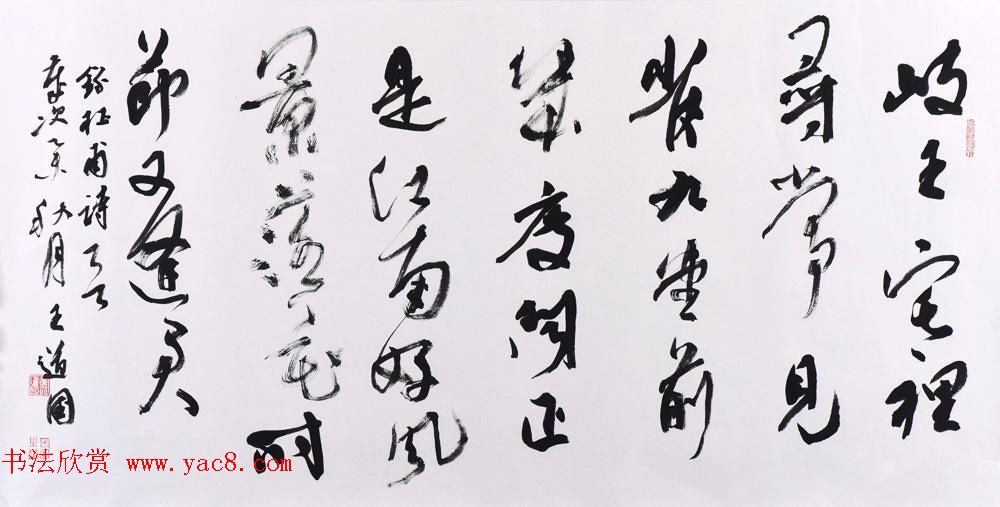 岐王宅裡
尋常見
崔九堂前
幾度聞正
是江南好風
景落花時
節又逢君
錄杜甫詩
歲次 秋月王道國
书法欣赏 www.yac8.com